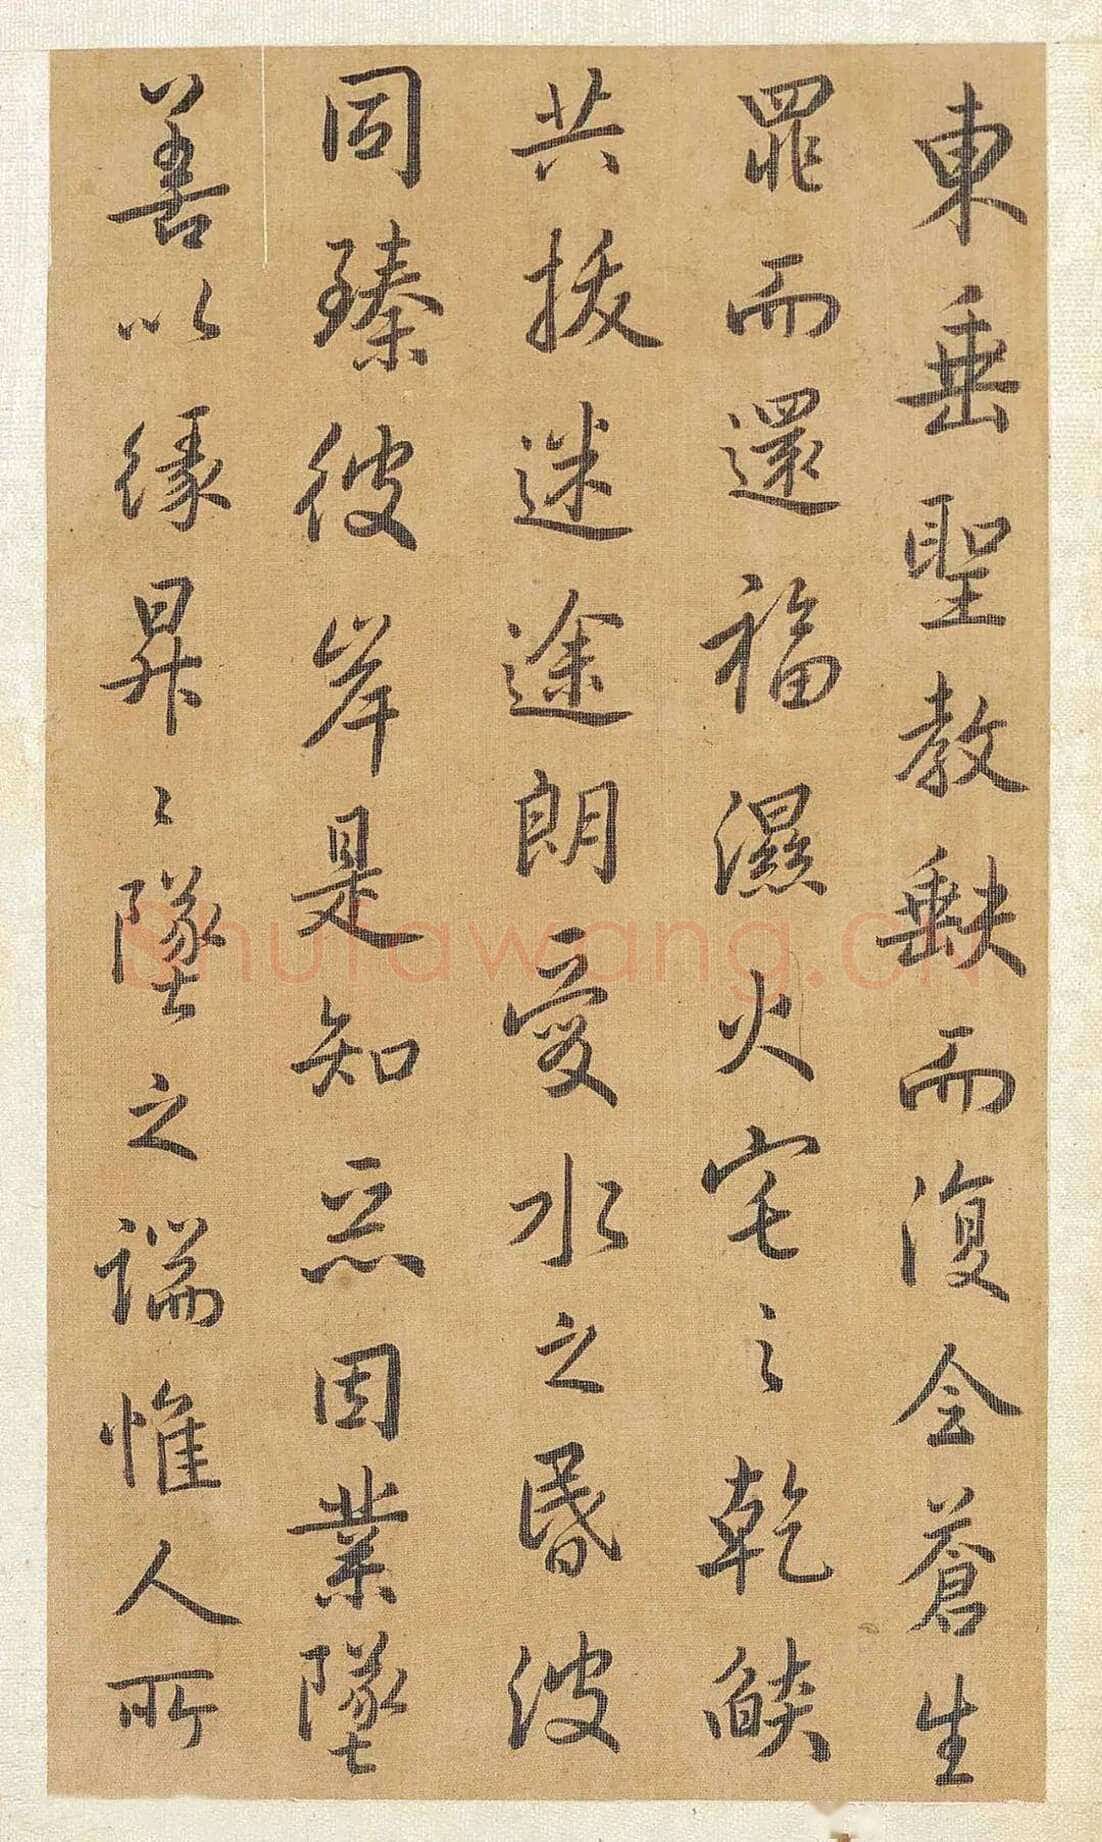 東垂聖教缺而復全蒼生
罪而還福濕火宅之乾燄
共拔迷途朗愛水之昏波
同臻彼岸是知惡因業墜
善以緣昇〻墜之端惟人所
shufawang.cn